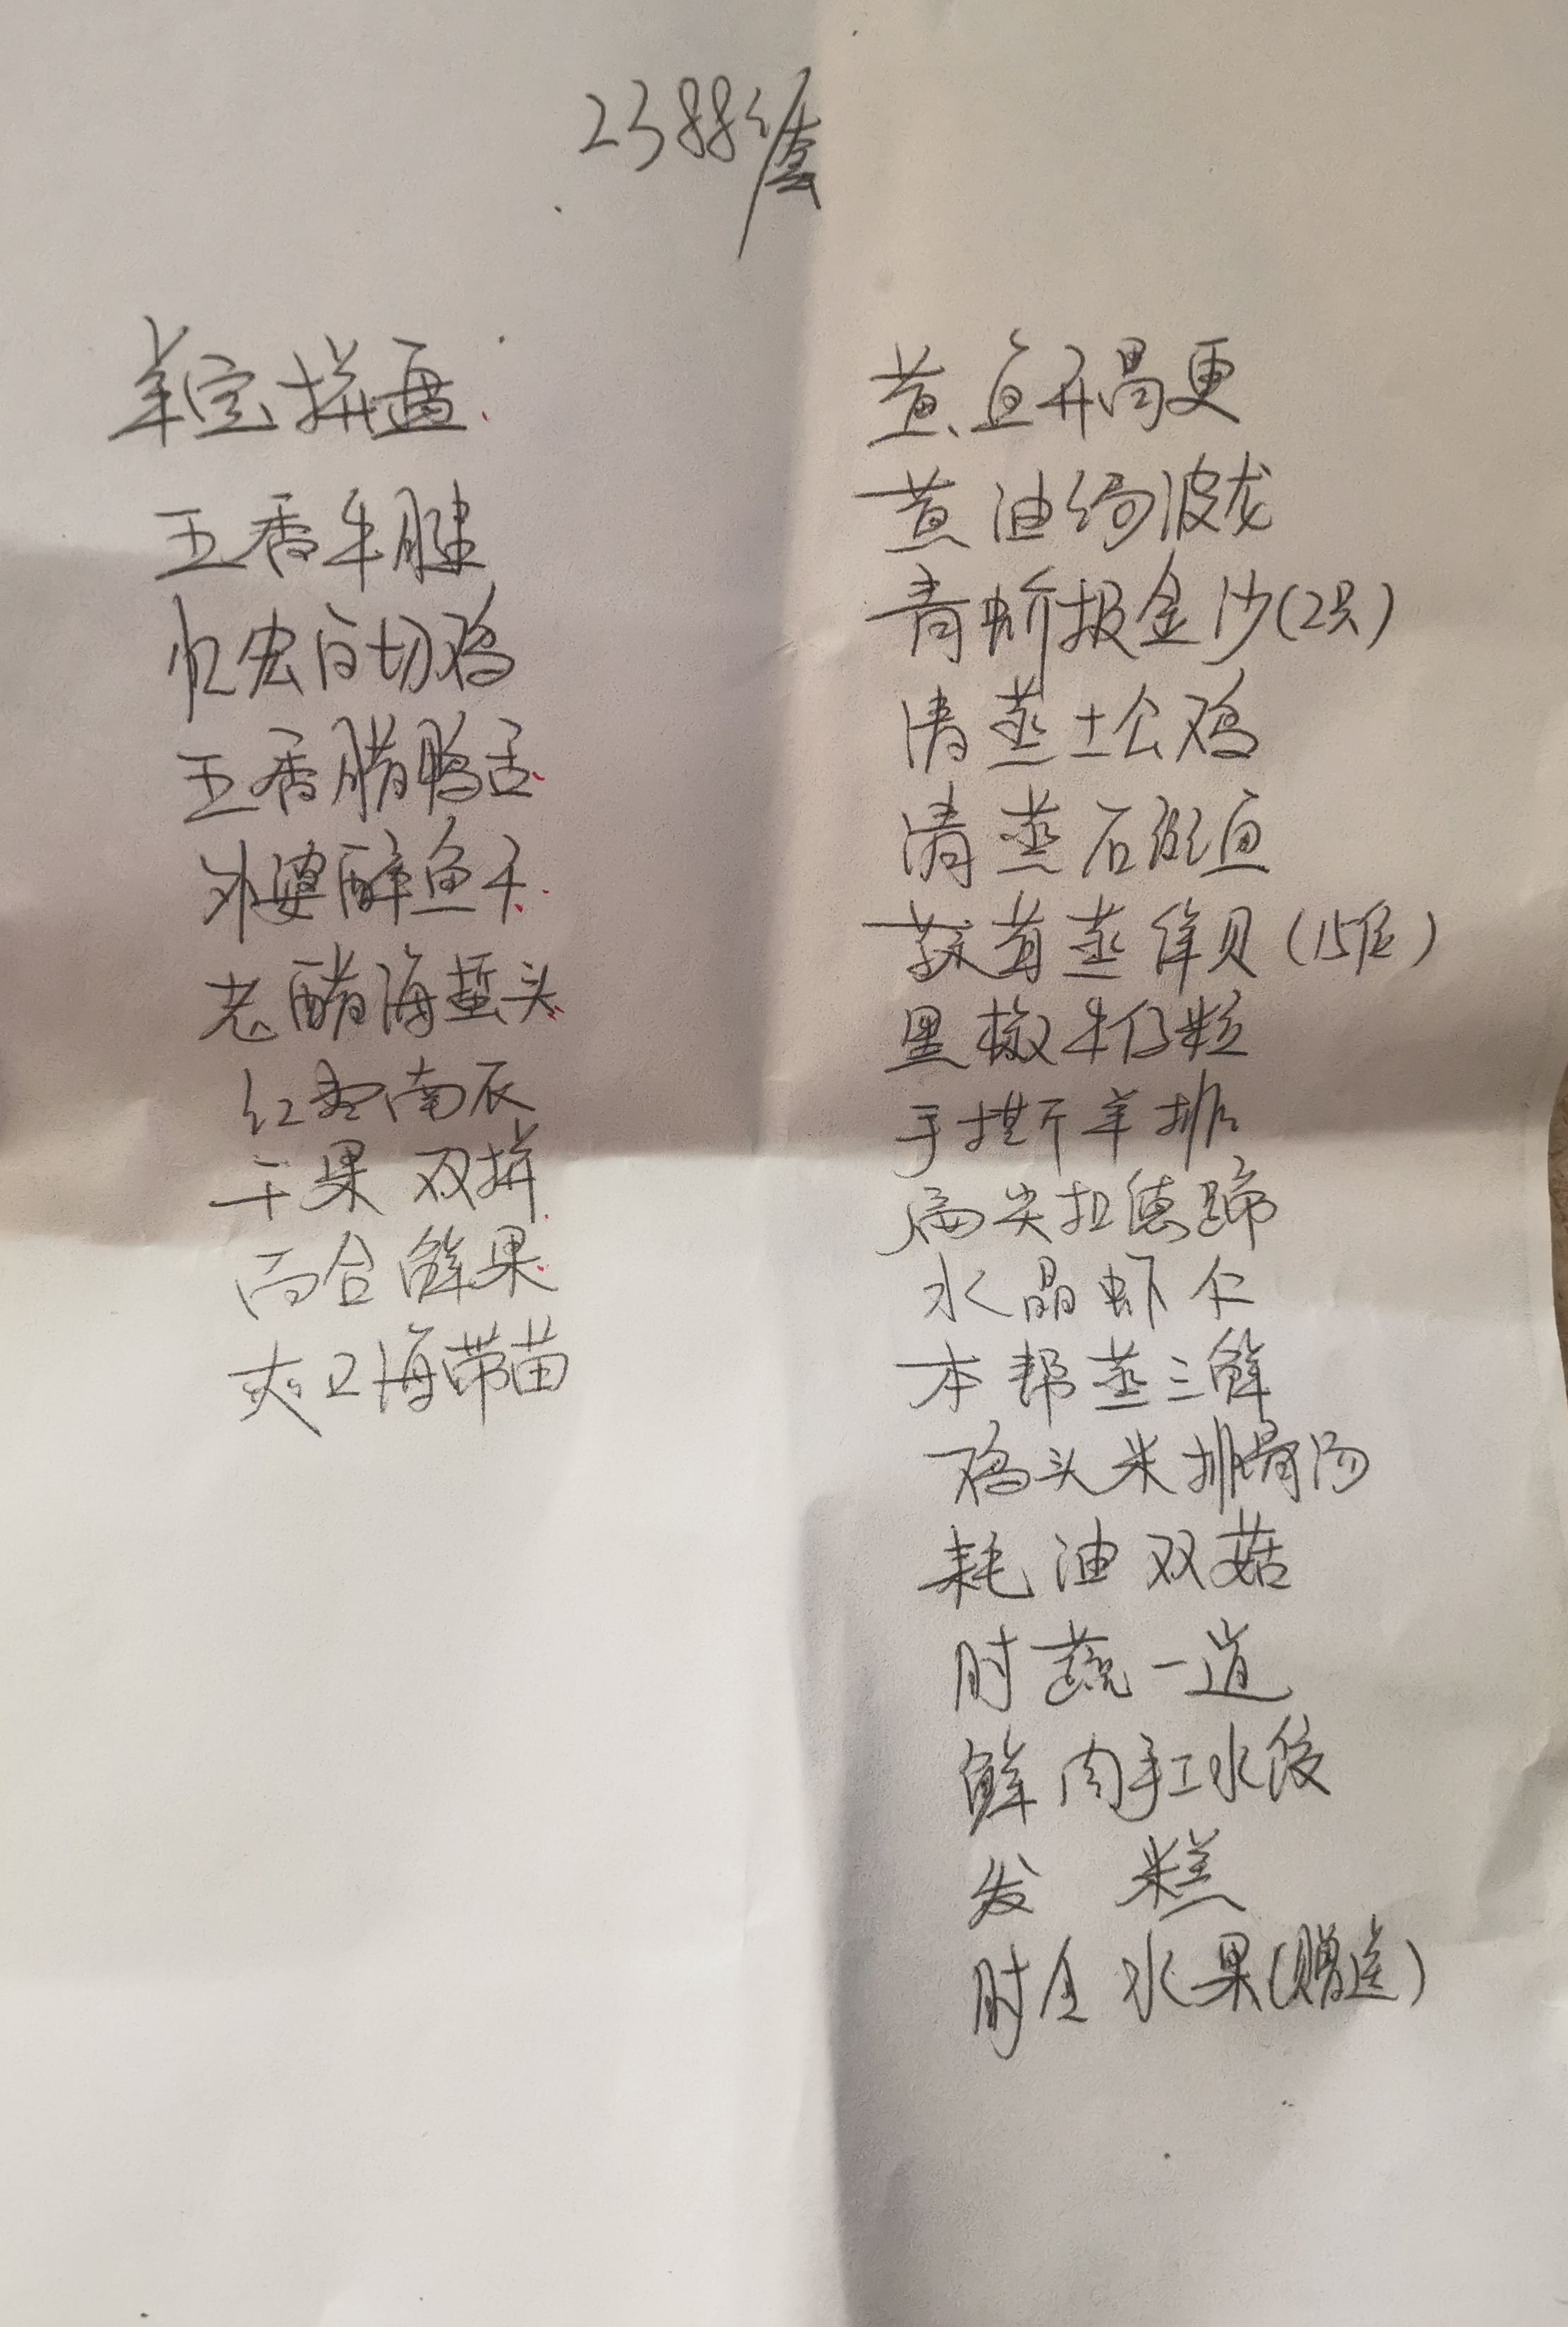 2388
拼盘
五香牛腱
恒宏白切鸡
五香腊鸭舌
外婆醉鱼干
老醋海蜇头
红枣南
干果双拼
百合鲜果
爽口海带苗
黄鱼羹
黄油焗波龙
青蚧报金沙(2只)
清蒸土公鸡
清蒸石斑鱼
蒸鲜贝(15位)
黑椒牛仔粒
手撕羊排
扁尖扣德蹄
水晶虾仁
本帮蒸三鲜
鸡头米排骨汤
耗油双菇
时蔬一道
鲜肉手工水饺
发糕
时令水果(赠送)